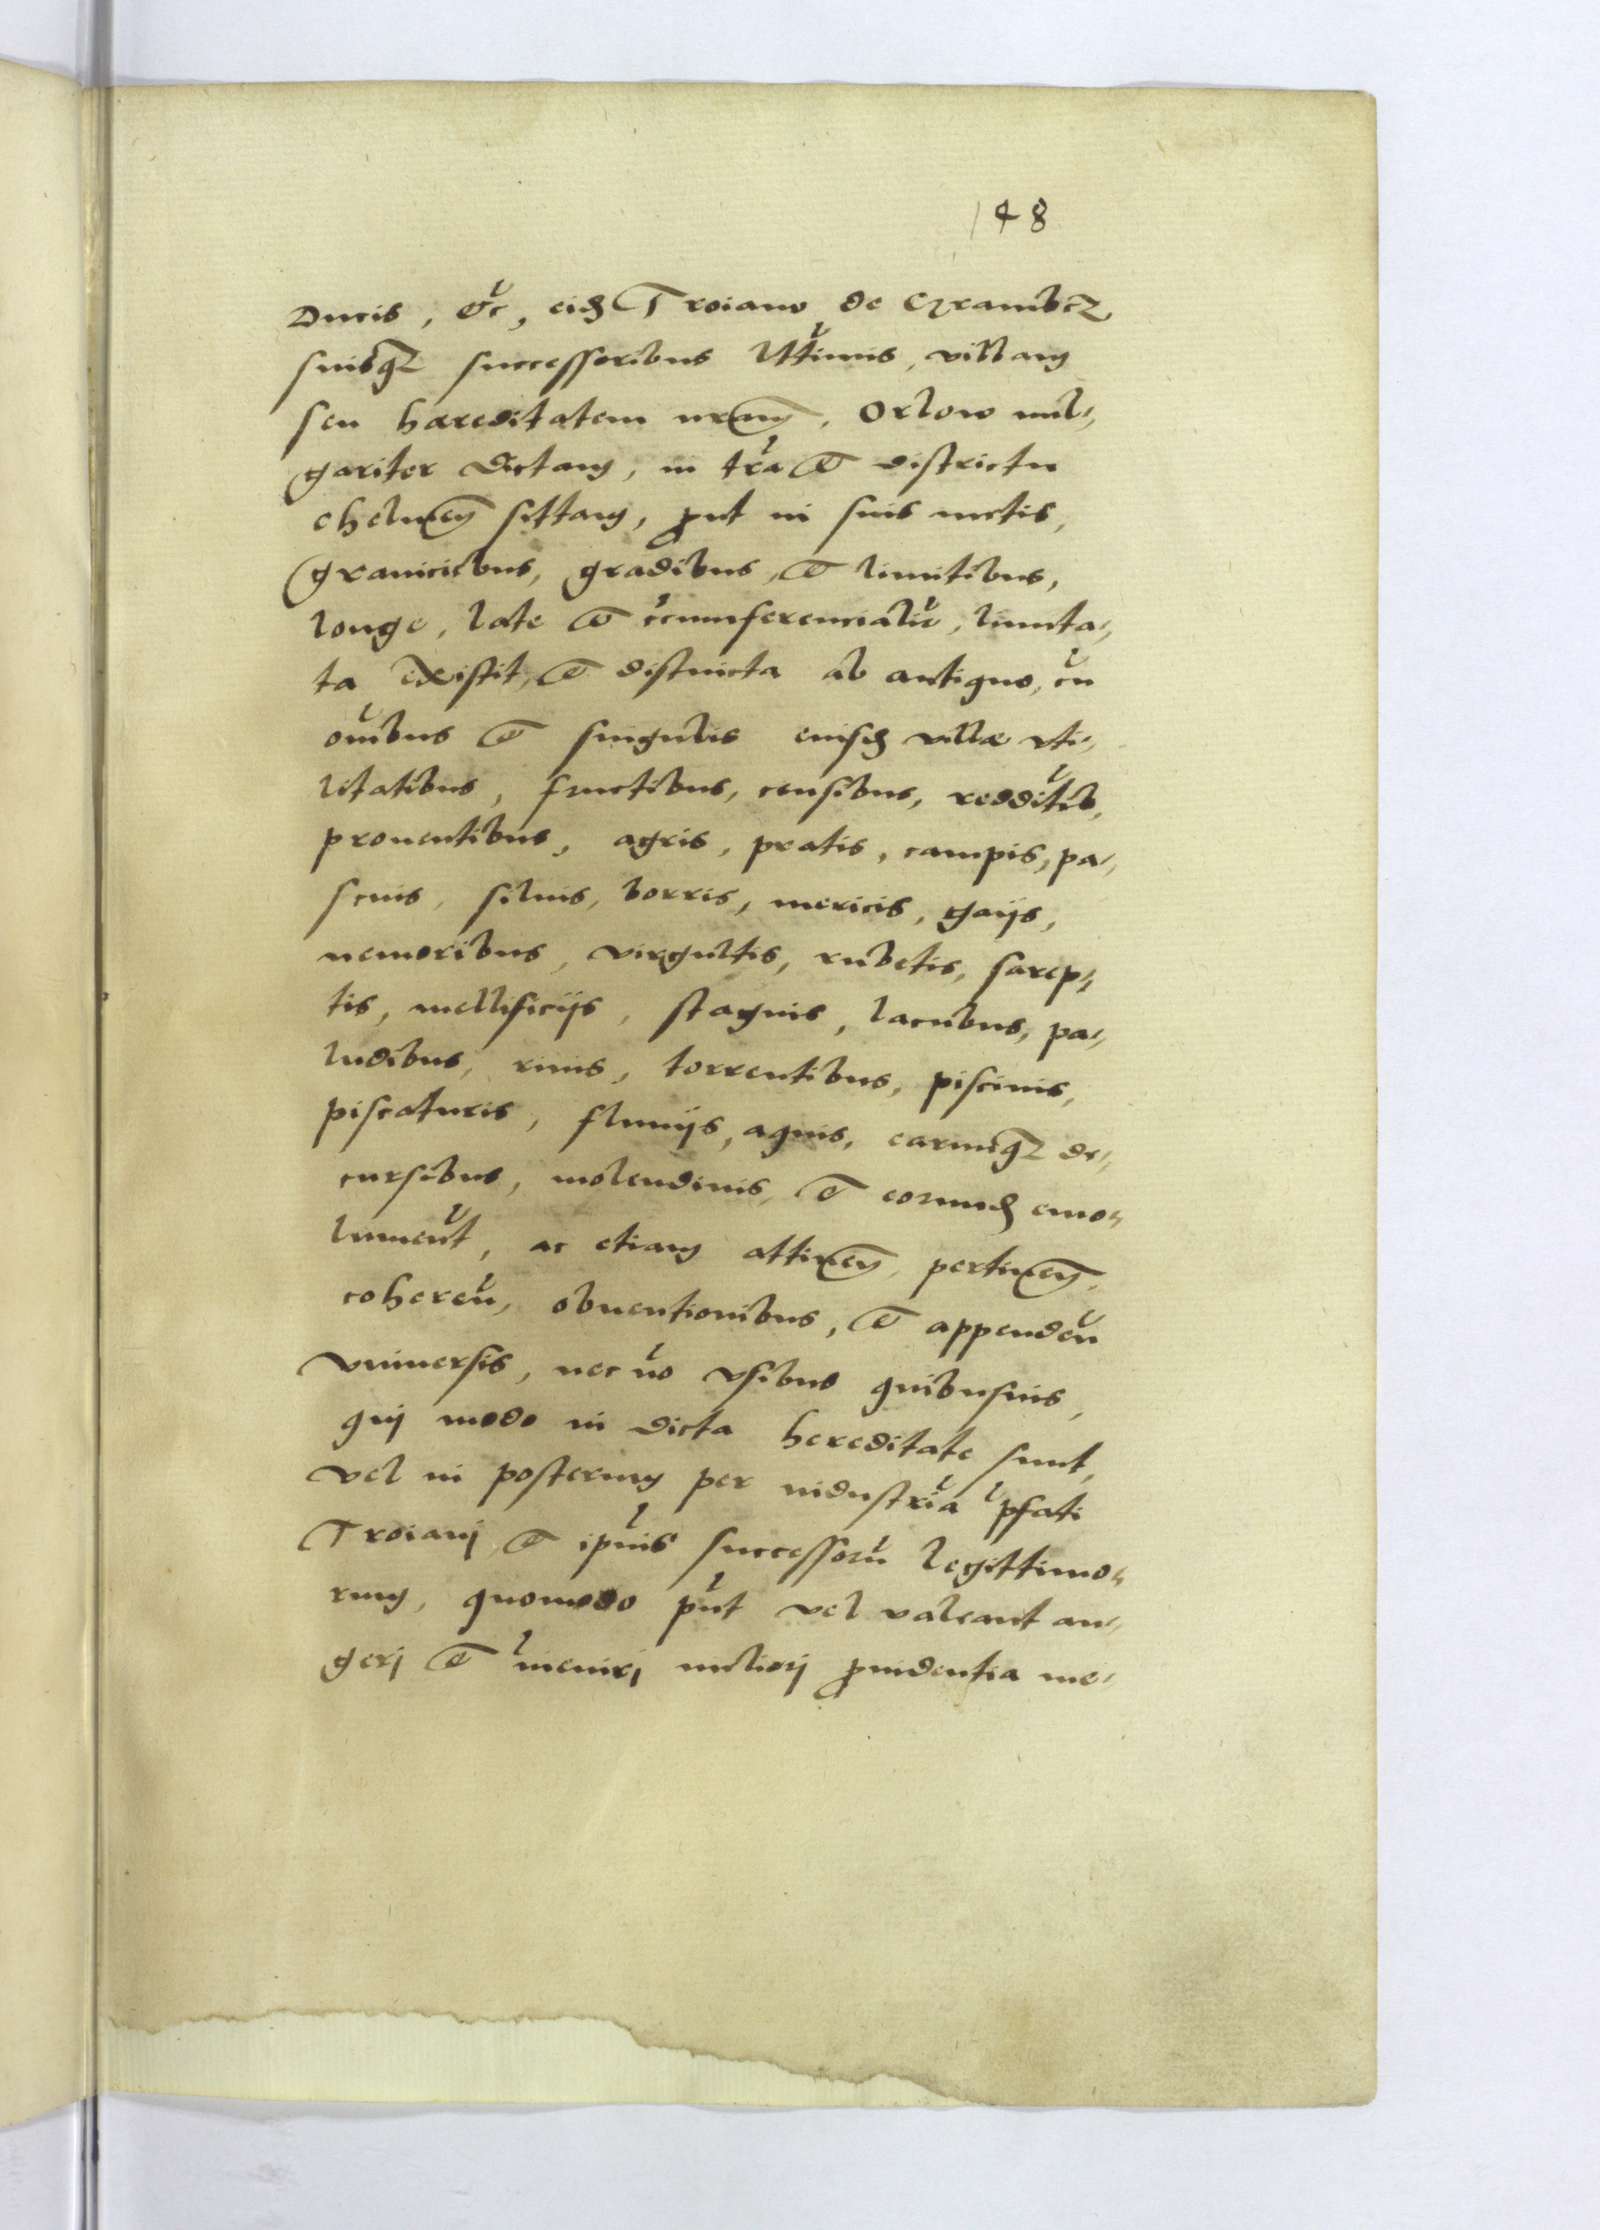 148
Ducis, &c, eid Troiano de Chrambcz
suisq; successoribus lttimis, villam
seu hæreditatem nram, Orlow vul-
gariter dictam, in tra et districtu
chelmen sittam, prout in suis metis,
graniciebus, gradibus, et limitibus,
longe, late et circumferencialit, limita-
ta existit, et distincta ab antiquo, cu
oibus et singulis eiusd villæ vti-
litatibus, fructibus, censibus, redditib,
prouentibus, agris, pratis, campis, pa-
scuis, siluis, borris, mericis, gaijs,
nemoribus, virgultis, rubetis, sarep-
tis, mellificijs, stagnis, lacubus, pa-
ludibus, riuis, torrentibus, piscinis,
piscaturis, fluuijs, aquis, earumq; de-
cursibus, molendinis, et eorumd emo-
lument, ac etiam attinen, pertinen,
coheren, obuentionibus, et appenden
vniuersis, nec no vsibus quibusuis,
quj modo in dicta hereditate sunt,
vel in posterum per industria pfati
Troianj et ipius successoru legittimo-
rum, quomodo pnt vel valeant au-
gerj et inenirj meliorj prouidentia me-